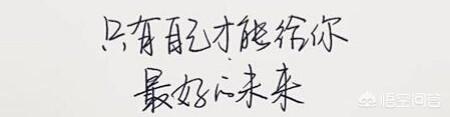 只有自己才能给你
最好的未来
悟空问答